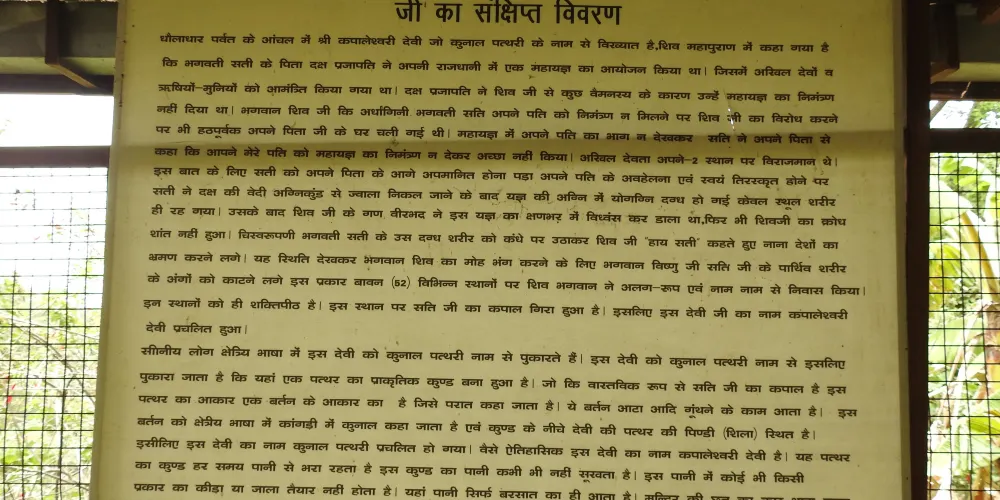 जी का संक्षिप्त विवरण
धौलाधार पर्वत के आंचल में श्री कपालेश्वरी देवी जो कुनाल पत्थरी के नाम से विख्यात है,शिव महापुराण में कहा गया है
कि भगवती सती के पिता दक्ष प्रजापति ने अपनी राजधानी में एक महायज्ञ का आयोजन किया था। जिसमें अखिल देवों व
ऋषियों-मुनियों को आमंत्रित किया गया था। दक्ष प्रजापति ने शिव जी से कुछ वैमनस्य के कारण उन्हें महायज्ञ का निमंत्रण
नहीं दिया था। भगवान शिव जी कि अर्धांगिनी भगवती सति अपने पति को निमंत्रण न मिलने पर शिव जी का विरोध करने
पर भी हठपूर्वक अपने पिता जी के घर चली गई थी। महायज्ञ में अपने पति का भाग न देखकर सति ने अपने पिता से
कहा कि आपने मेरे पति को महायज्ञ का निमंत्रण न देकर अच्छा नहीं किया। अखिल देवता अपने-2 स्थान पर विराजमान थे।
इस बात के लिए सती को अपने पिता के आगे अपमानित होना पड़ा अपने पति के अवहेलना एवं स्वयं तिरस्कृत होने पर
सती ने दक्ष की वेदी अग्निकुंड से ज्वाला निकल जाने के बाद यज्ञ की अग्नि में योगग्नि दग्ध हो गई केवल स्थूल शरीर
ही रह गया। उसके बाद शिव जी के गण वीरभद ने इस यज्ञ का क्षणभर में विध्वंस कर डाला था,फिर भी शिवजी का क्रोध
शांत नहीं हुआ। चिस्वरूपणी भगवती सति के उस दग्ध शरीर को कंधे पर उठाकर शिव जी "हाय सती" कहते हुए नाना देशों का
भ्रमण करने लगे। यह स्थिति देखकर भगवान शिव का मोह भंग करने के लिए भगवान विष्णु जी सति जी के पार्थिव शरीर
के अंगों को काटने लगे इस प्रकार बावन (52) विभिन्न स्थानों पर शिव भगवान ने अलग-रूप एवं नाम नाम से निवास किया।
इन स्थानों को ही शक्तिपीठ है। इस स्थान पर सति जी का कपाल गिरा हुआ है। इसलिए इस देवी जी का नाम कपालेश्वरी
देवी प्रचलित हुआ।
सीानीय लोग क्षेत्रिय भाषा में इस देवी को कुनाल पत्थरी नाम से पुकारते हैं। इस देवी को कुनाल पत्थरी नाम से इसलिए
पुकारा जाता है कि यहां एक पत्थर का प्राकृतिक कुण्ड बना हुआ है। जो कि वास्तविक रूप से सति जी का कपाल है इस
पत्थर का आकार एक बर्तन के आकार का है जिसे परात कहा जाता है। ये बर्तन आटा आदि गूंथने के काम आता है। इस
बर्तन को क्षेत्रीय भाषा में कांगड़ी में कुनाल कहा जाता है एवं कुण्ड के नीचे देवी की पत्थर की पिण्डी (शिला) स्थित है।
इसीलिए इस देवी का नाम कुनाल पत्थरी प्रचलित हो गया। वैसे ऐतिहासिक इस देवी का नाम कपालेश्वरी देवी है। यह पत्थर
का कुण्ड हर समय पानी से भरा रहता है इस कुण्ड का पानी कभी भी नहीं सूखता है। इस पानी में कोई भी किसी
प्रकार का कीड़ा या जाला तैयार नहीं होता है। यहां पानी सिर्फ बरसात का ही आता है। मन्दिर की छत का